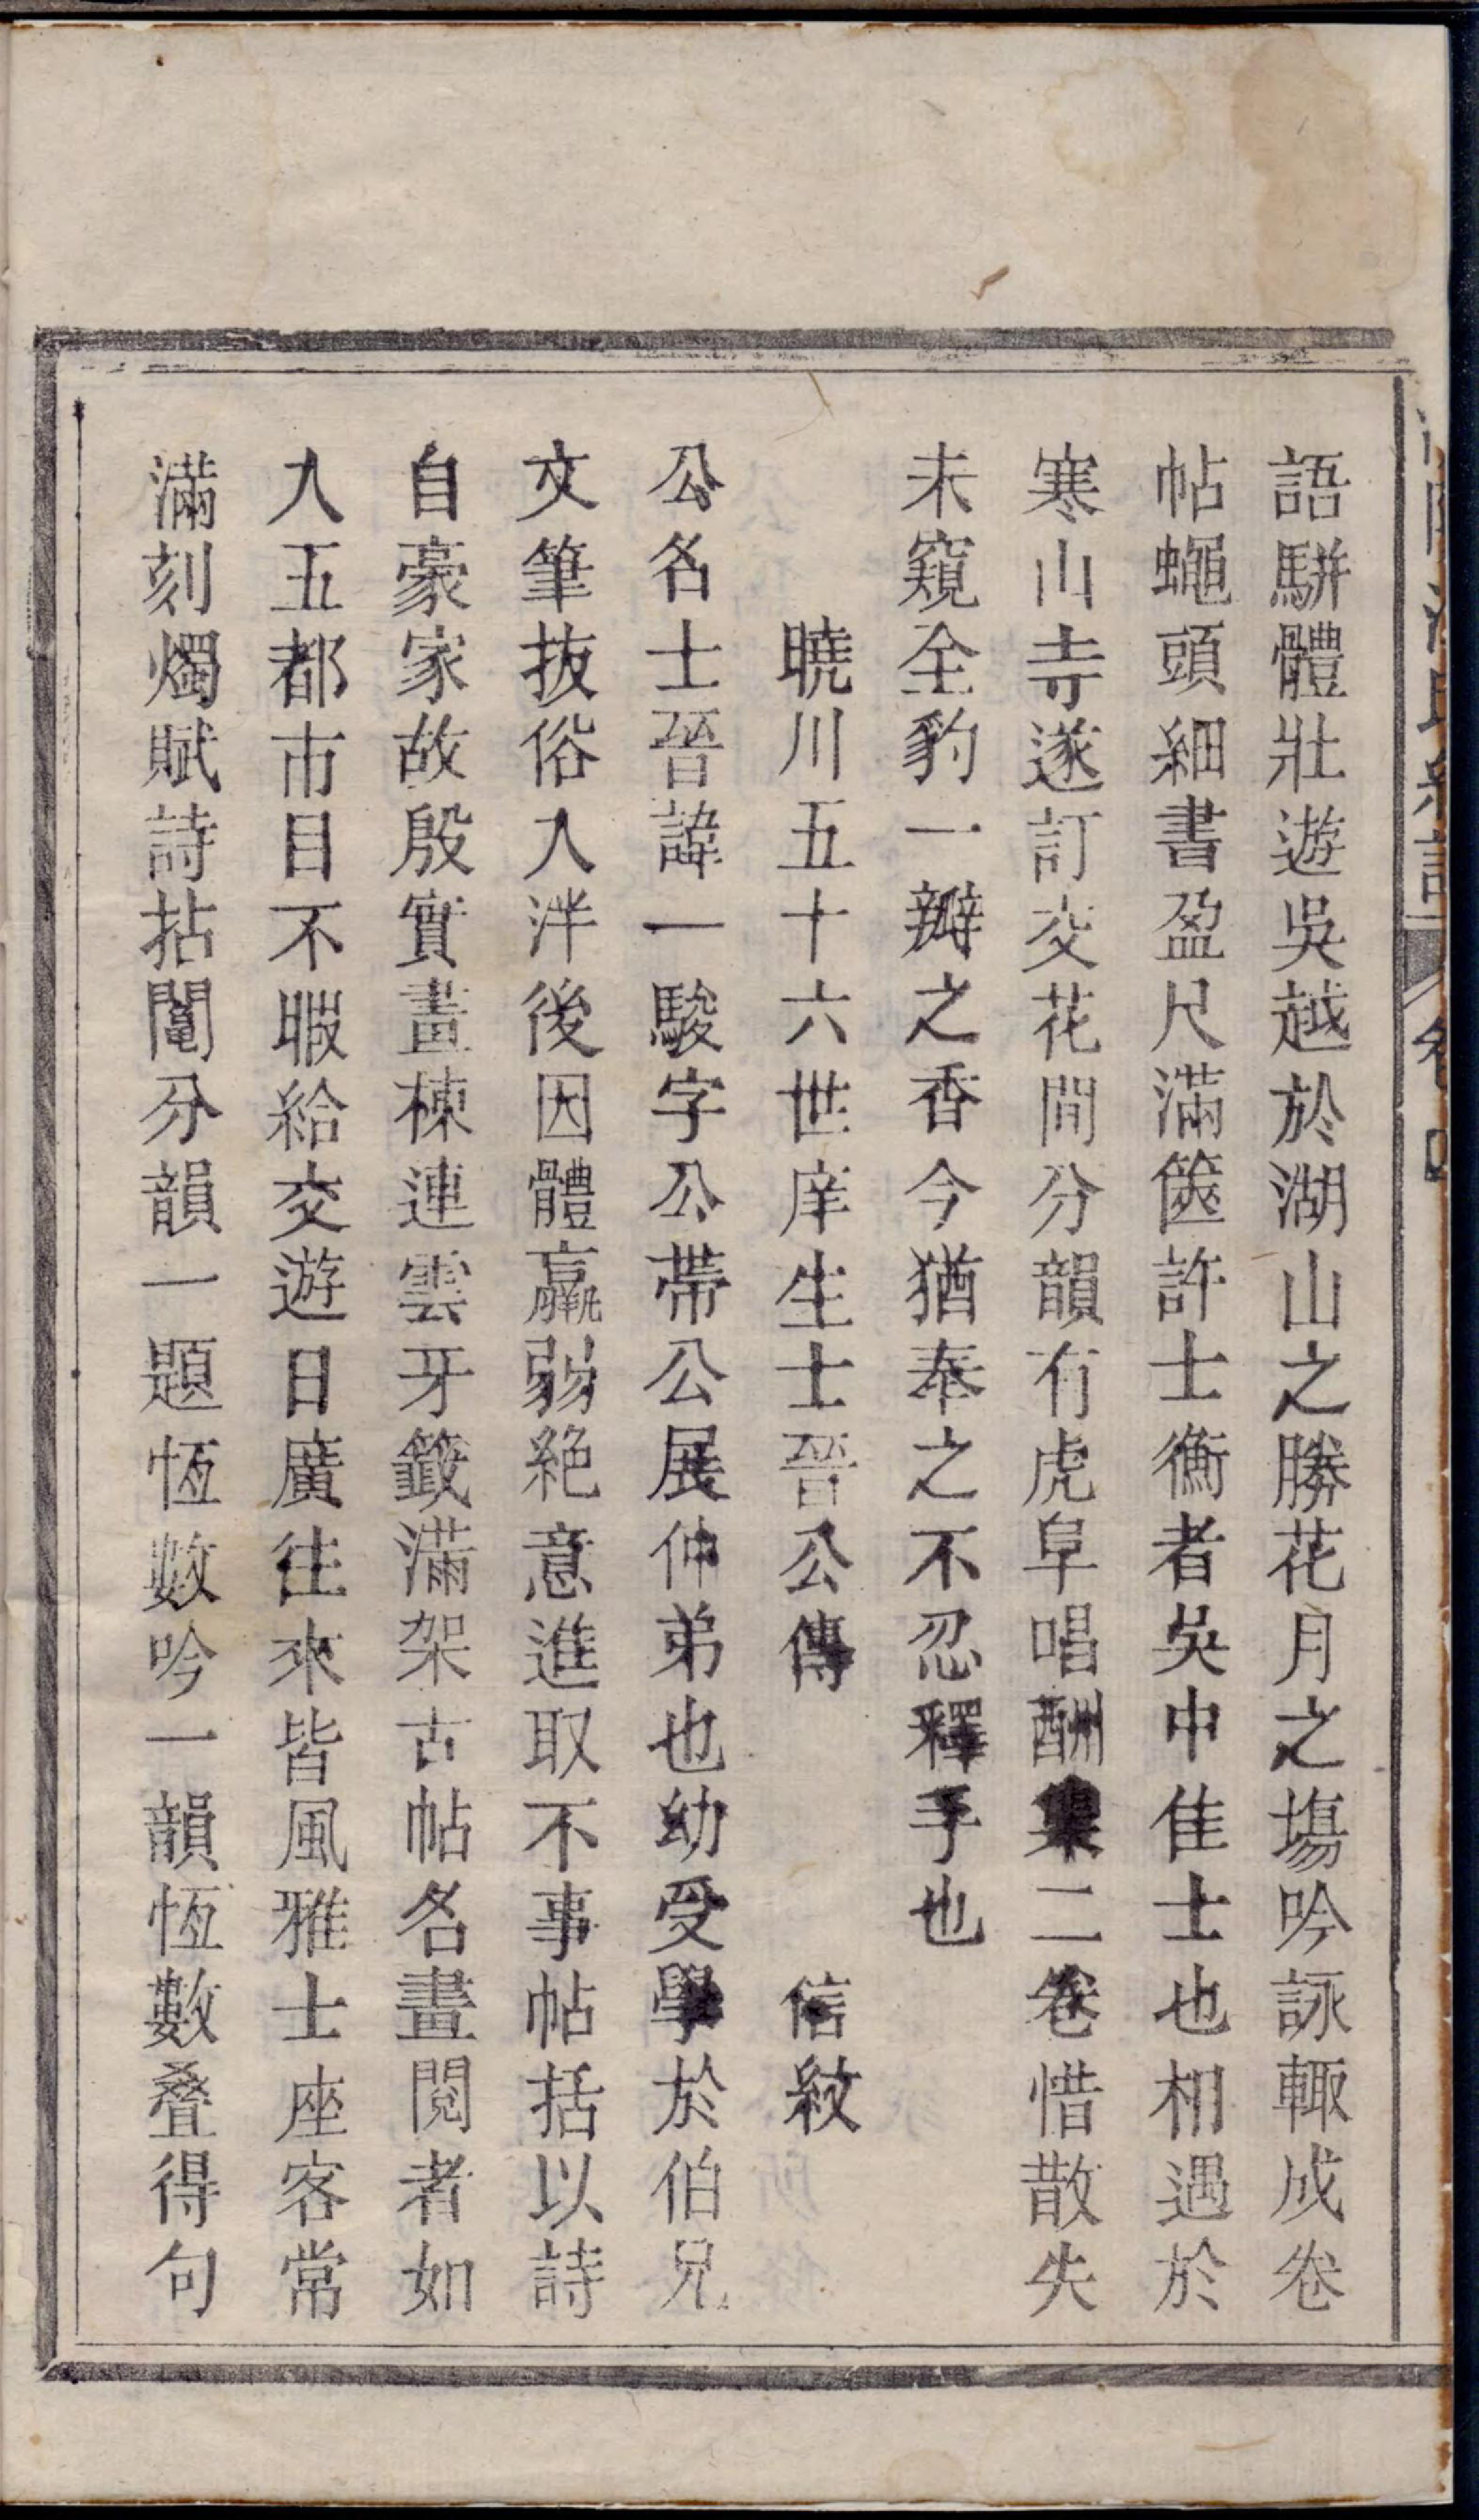 語駢體壯遊吳越於湖山之勝花月之塲吟詠輙成卷
帖蠅頭細書盈尺滿篋許士衡者吳中佳士也相遇於
寒山寺遂訂交花間分韻有虎阜唱酬集二卷惜散失
未窺全豹一瓣之香今猶奉之不忍釋手也
曉川五十六世庠生士晉公傳 信紋
公名士晉諱一駿字公帶公展仲弟也幼受學於伯兄
文筆拔俗入泮後因體羸弱絶意進取不事帖括以詩
自豪家故殷實畫棟連雲牙籤滿架古帖名畫閱者如
入五都市目不暇給交遊日廣往來皆風雅士座客常
滿刻燭賦詩拈鬮分韻一題恆數吟一韻恆數叠得句